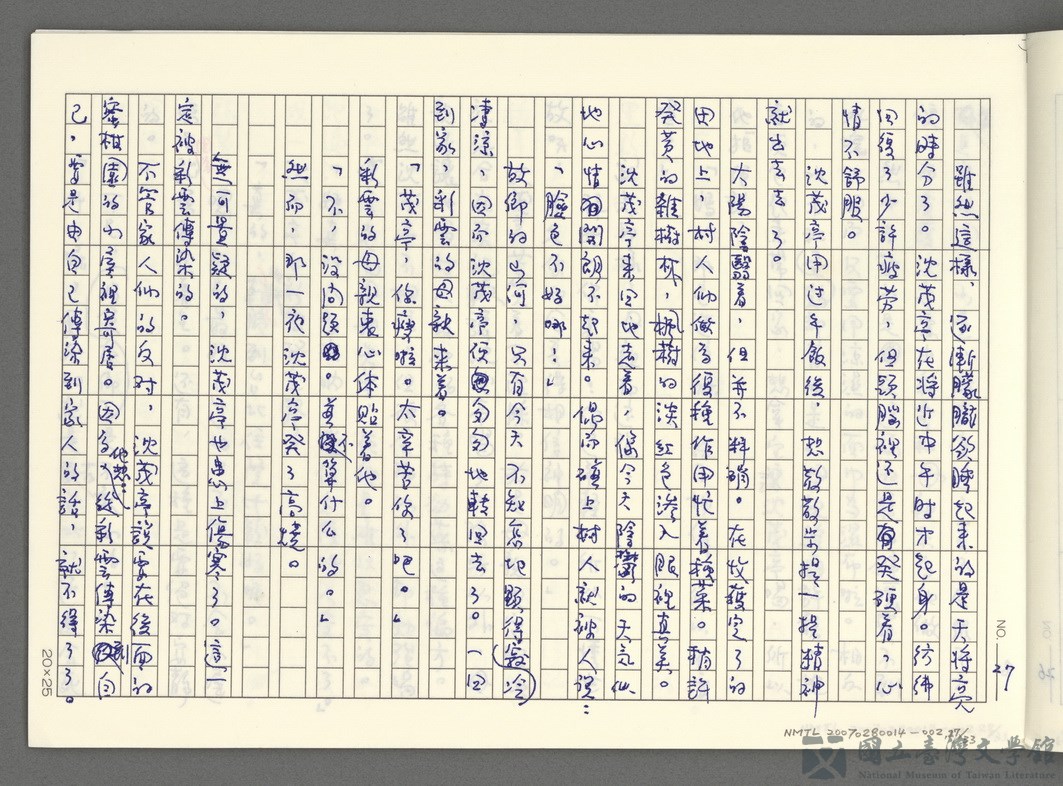 NO. 27
雖然這樣,逐漸朦朧欲睡起來的是天將亮
的時分了。沈茂亭在將近中午時才起身。彷彿
回復了少許疲勞,但頭腦裡还是有發硬着,心
情不舒服。
沈茂亭用过午飯後,想散散步提一提精神
就出去去了。
太陽陰翳着,但并不料峭。在收穫完了的
田地上,村人们做為復種作用忙着種菜。稍許
發黃的雜樹林,楓樹的淡紅色滲入眼裡真美。
沈茂亭来回地走着,像今天陰鬱的天気似
地心情開朗不起来。偶而碰上村人就被人說:
「臉色不好哪!」
故鄉的山河,只有今天不知怎地顯得(寂冷)
凄涼,因而沈茂亭便匆匆地轉回去了。一回
到家,彩雲的母親来着。
「茂亭,你瘦啦。太辛苦你了吧。」
彩雲的母親衷心体貼着他。
「不,没問題。並不算什么的。」
然而,那一夜沈茂亭發了高燒。
無可置疑的,沈茂亭也患上傷寒了。這一
定被彩雲傳染的。
不管家人们的反对,沈茂亭說要在後面的
蜜柑園的小屋裡寄居。因為他想:從彩雲傳染到自
己,要是由自己傳染到家人的話,就不得了了。
20×25
NMTL 20070280014-002 27/83
國立臺灣文學館
National Museum of Taiwan Literature